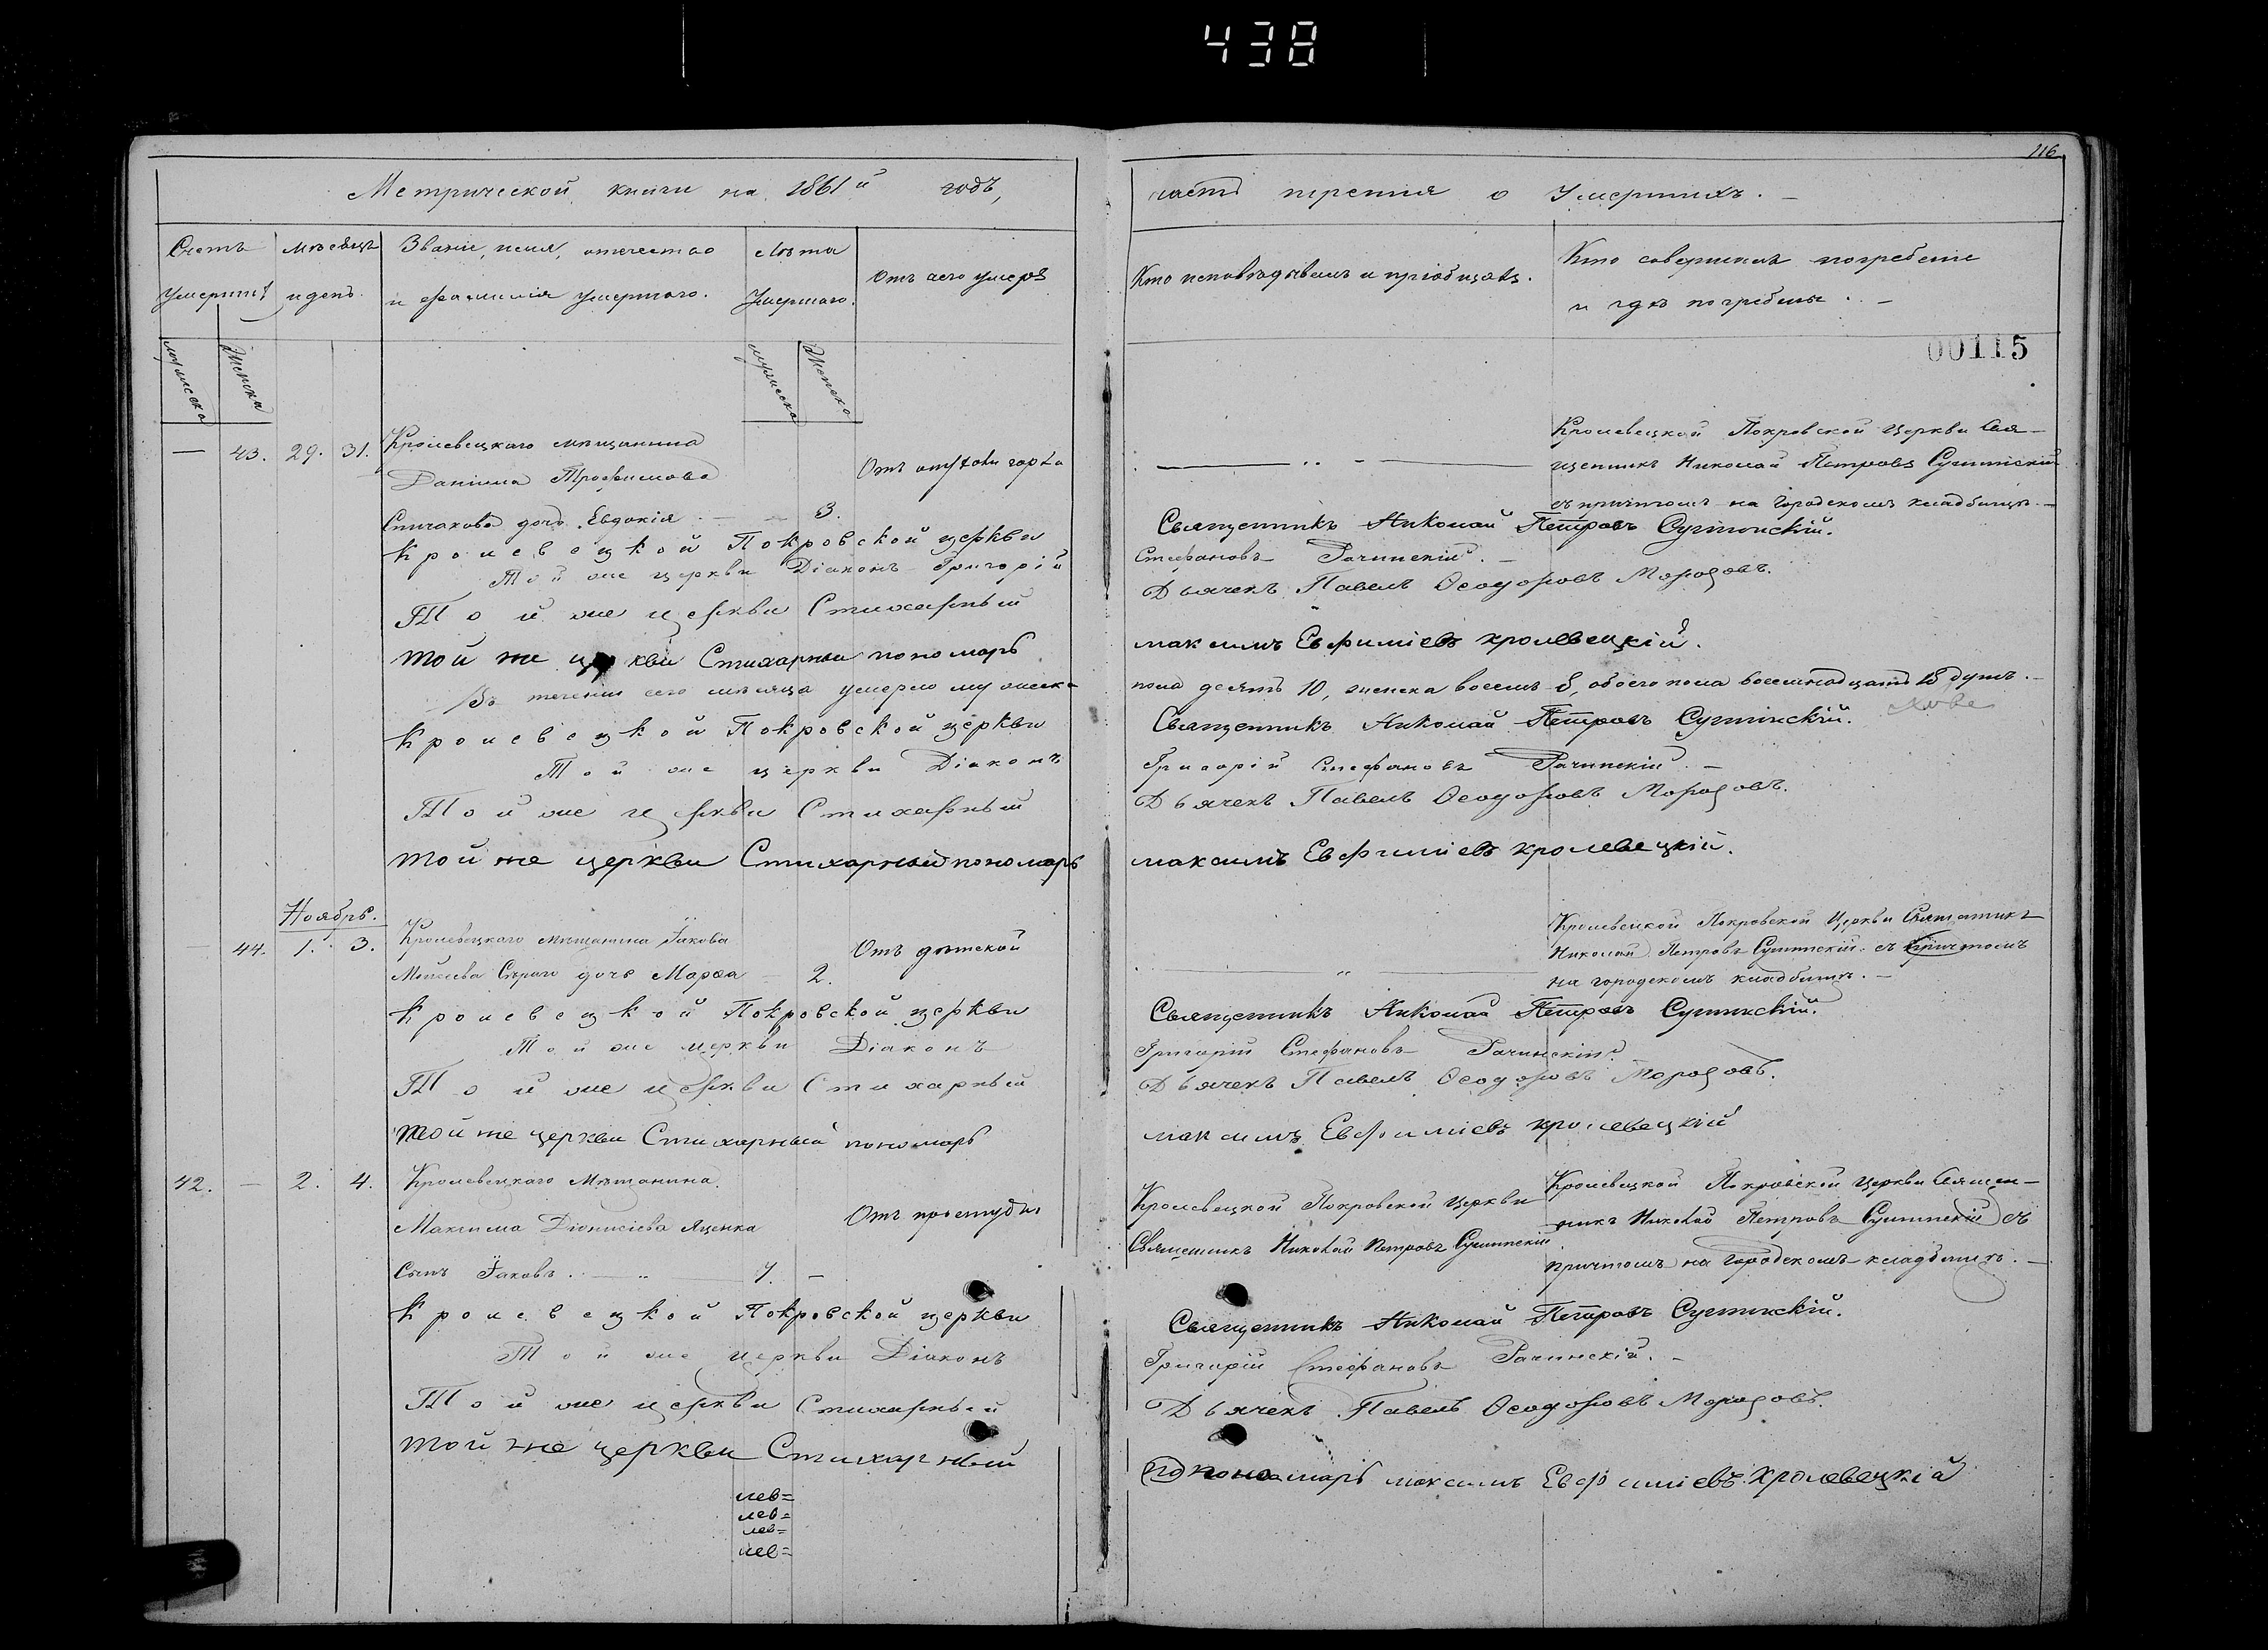 438
116
Метрической книги на 1861й годъ,
часть третія о Умершихъ.
Счетъ умершихъ
мѣсяцъ и день.
Званіе, имя, отчество и фамилія умершаго.
Лѣта Умершаго.
Отъ чего умеръ
Кто исповѣдывалъ и пріобщалъ.
Кто совершалъ погребеніе и гдѣ погребены.
мужеска
Женска
мужеска
Женска
00115
— 43. 29. 31. Кролевецкаго мѣщанина
Даніила Трофимова
дочь Евдокія 3.
Отъ
Кролевецкой Покровской Церкви Свя-
щенникъ Николай Петровъ
съ причтомъ на Городскомъ кладбищѣ.
Кролевецкой Покровской церкви Священникъ Николай Петровъ
Той же церкви Діаконъ Григорій Стефановъ Рачинскій.
Той же церкви Стихарный Дьячекъ Павелъ Ѳеодоровъ Морозовъ.
той же церкви Стихарный пономарь максимъ Евфиміевъ кролевецкій.
Въ теченіи сего мѣсяца умерло мужеска пола десять 10, женска восемь 8, обоего пола восемнадцать 18 душъ.
Кролевецкой Покровской церкви Священникъ Николай Петровъ
Той же церкви Діаконъ Григорій Стефановъ Рачинскій.
Той же церкви Стихарный Дьячекъ Павелъ Ѳеодоровъ Морозовъ.
той же церкви Стихарный пономарь максимъ Евфиміевъ кролевецкій.
Ноябрь.
44. 1. 3. Кролевецкаго мѣщанина Іакова
Моисеева Сѣраго дочь Марѳа 2.
Отъ дѣтской
Кролевецкой Покровской Церкви Священникъ
Николай Петровъ съ причтомъ
на городскомъ кладбищѣ.
Кролевецкой Покровской церкви Священникъ Николай Петровъ
Той же церкви Діаконъ Григорій Стефановъ Рачинскій.
Той же церкви Стихарный Дьячекъ Павелъ Ѳеодоровъ Морозовъ.
той же церкви Стихарный пономарь максимъ Евфиміевъ кролевецкій
42. — 2. 4. Кролевецкаго Мѣщанина
Максима Діонисіева Яценка
Сынъ Іаковъ. 7. —
Отъ простуды
Кролевецкой Покровской Церкви
Священникъ Николай Петровъ
Кролевецкой Покровской Церкви Священ-
никъ Николай Петровъ съ
причтомъ на городскомъ кладбищѣ.
Кролевецкой Покровской церкви Священникъ Николай Петровъ
Той же церкви Діаконъ Григорій Стефановъ Рачинскій.
Той же церкви Стихарный Дьячекъ Павелъ Ѳеодоровъ Морозовъ.
той же церкви Стихарный пономарь максимъ Евфиміевъ кролевецкій
лев=
лев=
лев=
лев=